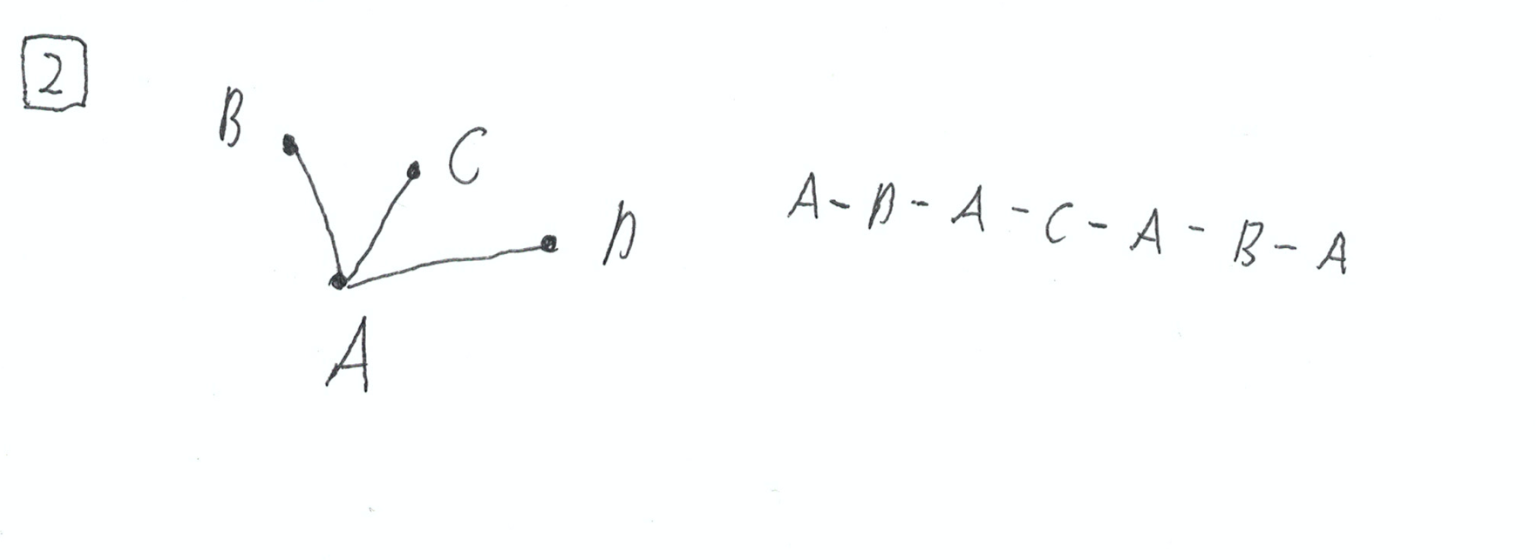 2
B
C
D
A
A - B - A - C - A - B - A